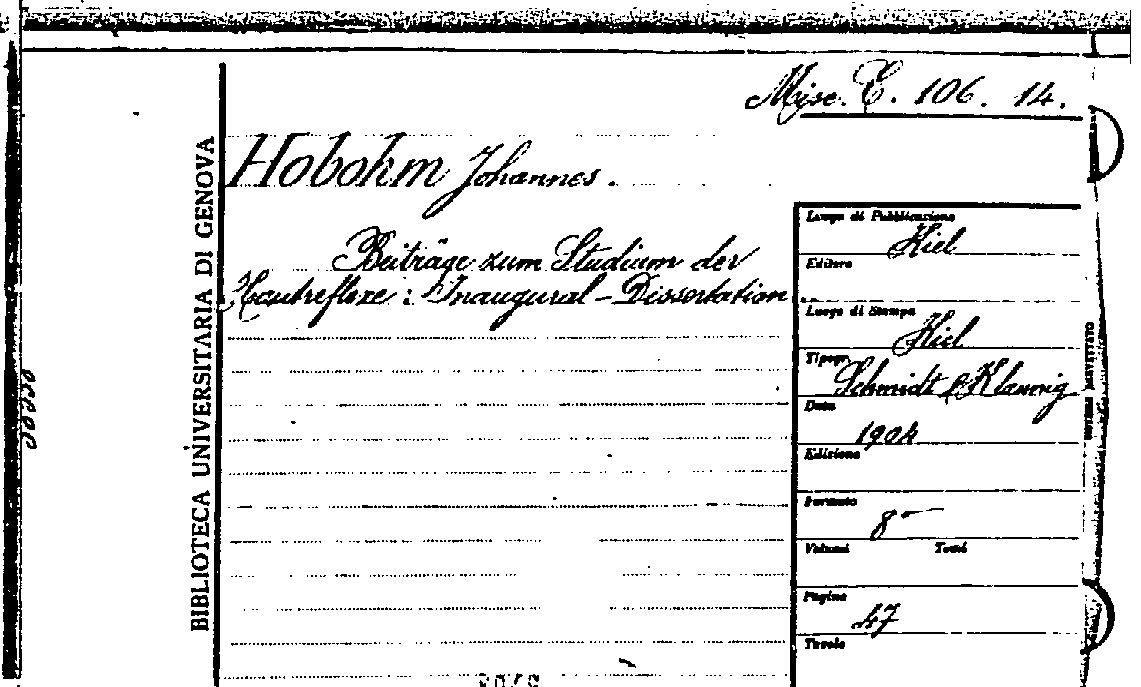 Misc. E. 106. 14.
BIBLIOTECA UNIVERSITARIA DI GENOVA
Hobohm Johannes.
Beiträge zum Studium der
Hautreflexe : Inaugural-Dissertation.
Luogo di Pubblicazione
Kiel
Editore
Luogo di Stampa
Kiel
Tipogr.
Schmidt & Klaunig
Data
1904
Edizione
Formato
8°
Volumi Tomi
Pagine
47
Tavole